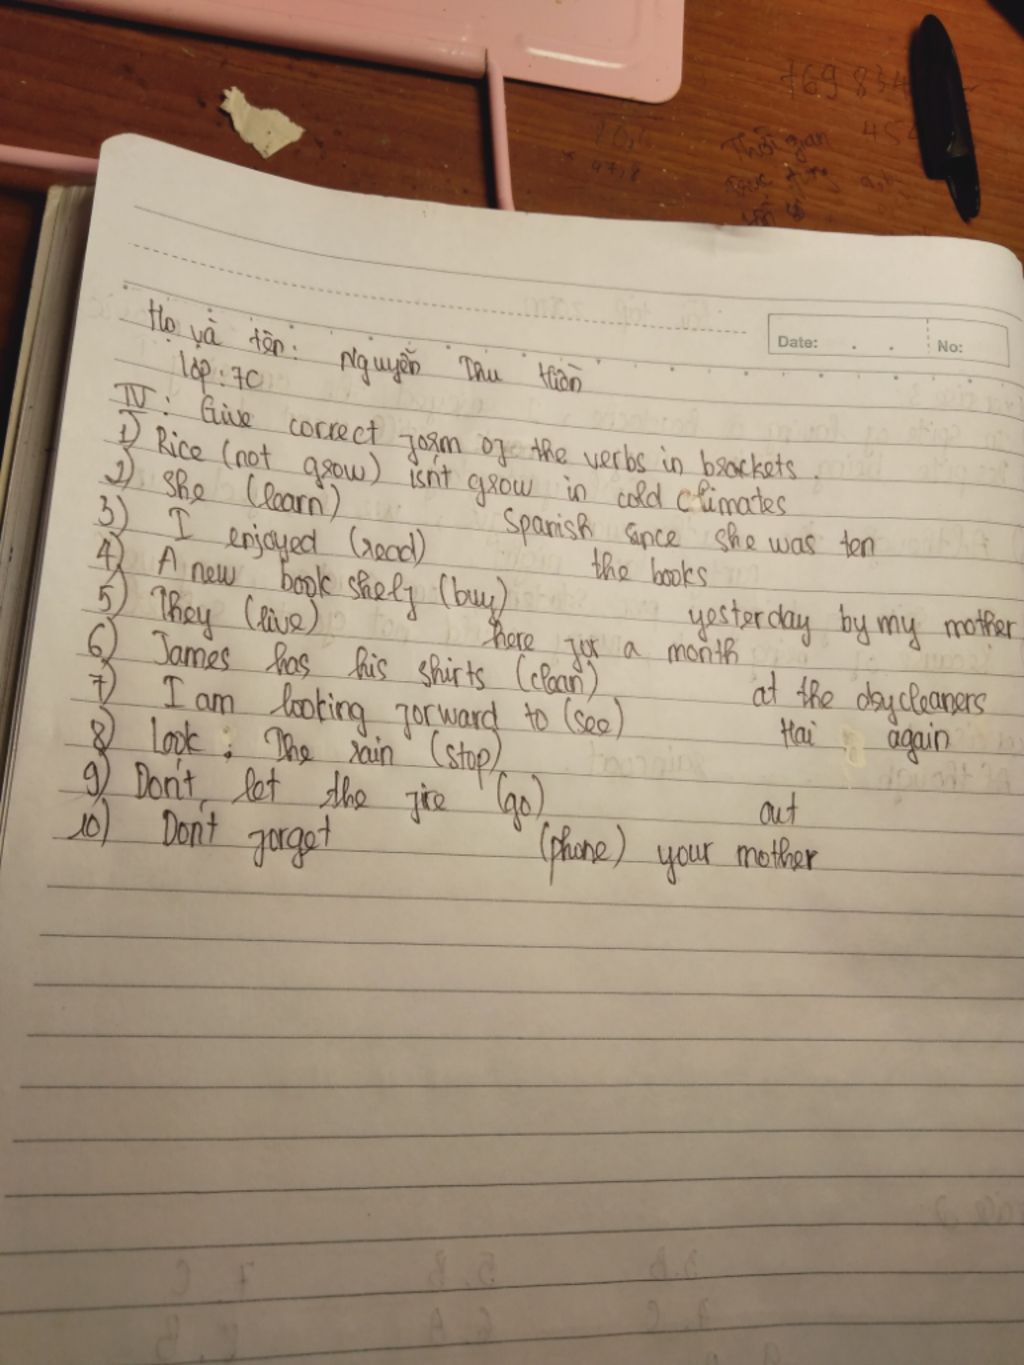 Date: . . No:
Họ và tên: Nguyễn Thu Hiền
Lớp: 7C
IV: Give correct form of the verbs in brackets.
1) Rice (not grow) isn't grow in cold climates
2) She (learn) Spanish since she was ten
3) I enjoyed (read) the books
4) A new book shelf (buy) yesterday by my mother
5) They (live) here for a month
6) James has his shirts (clean) at the drycleaners
7) I am looking forward to (see) Hai again
8) Look: The rain (stop)
9) Don't let the fire (go) out
10) Don't forget (phone) your mother